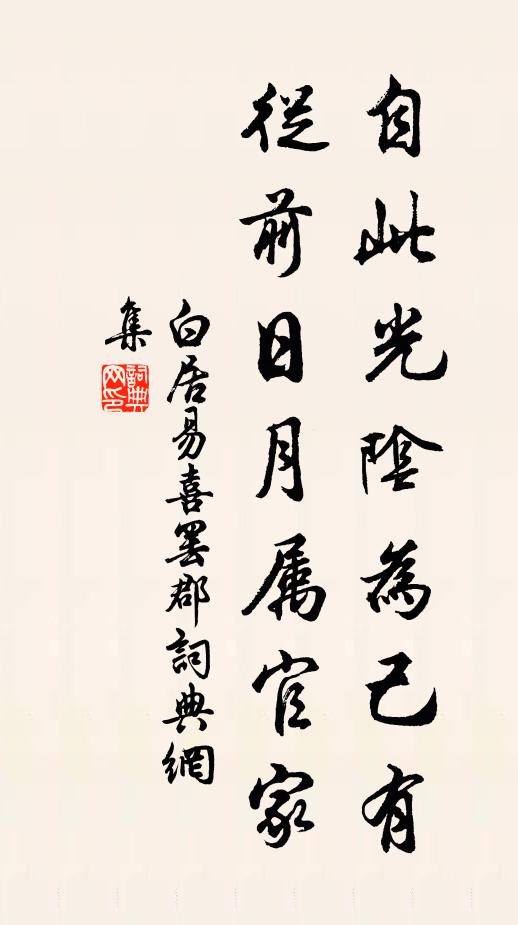 自此光陰為己有
從前日月属官家
白居易喜罢郡詞典網
集
詞典網印